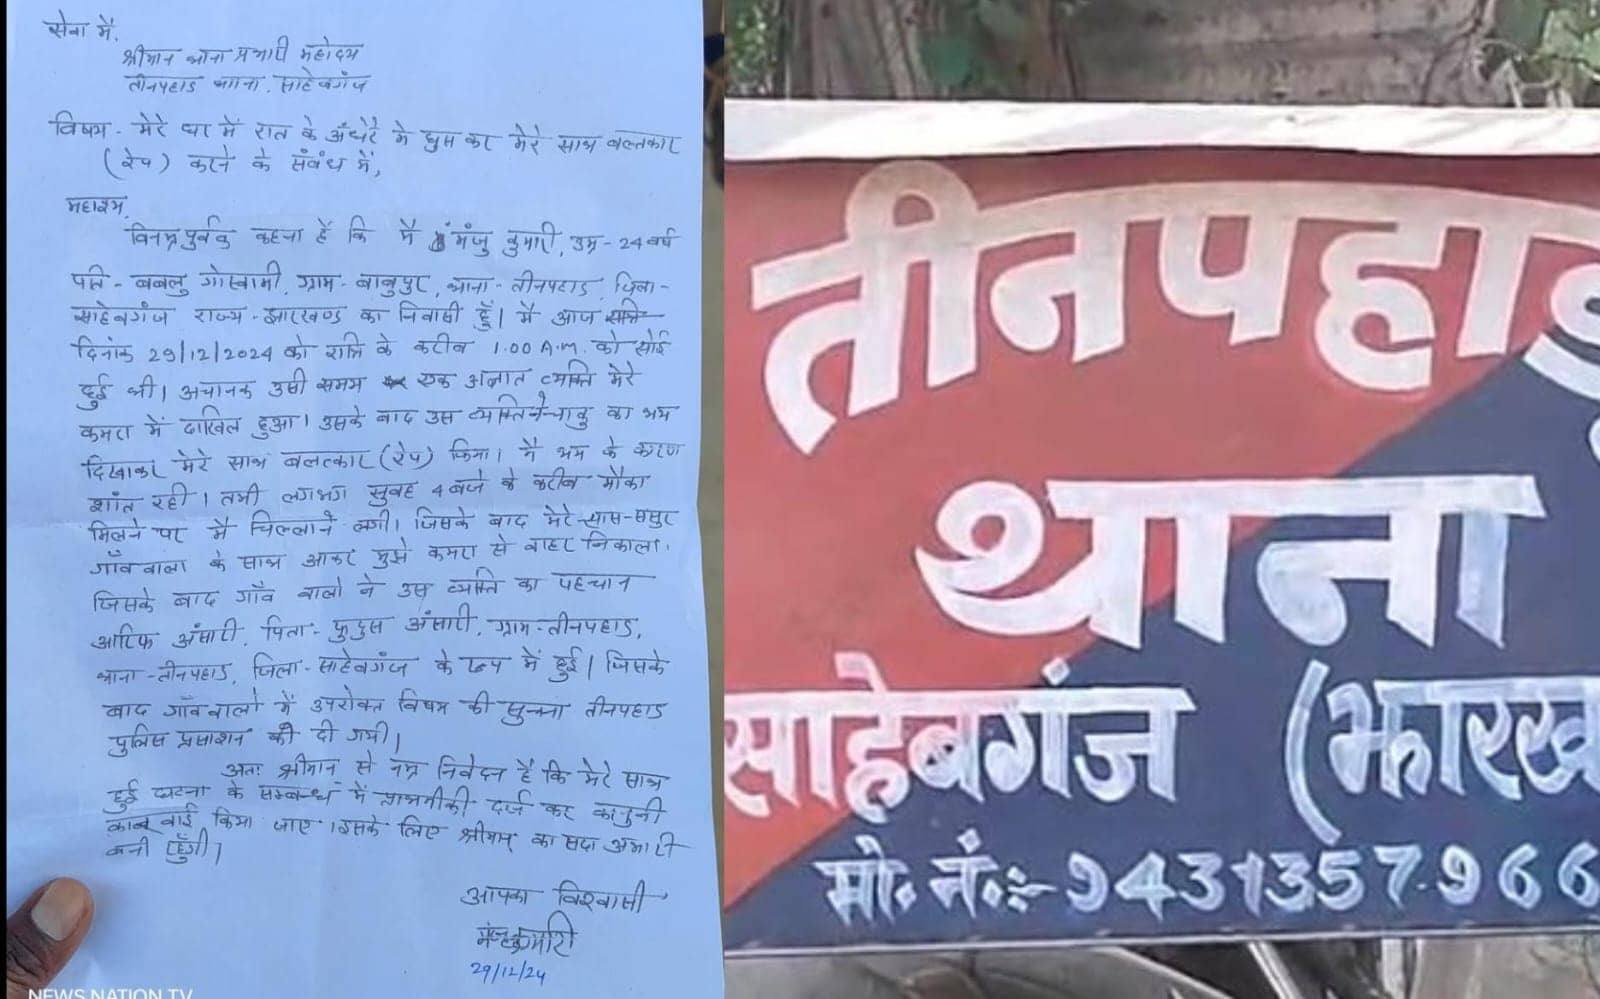 सेवा में,
श्रीमान थाना प्रभारी महोदय
तीनपहाड़ थाना, साहेबगंज
विषय - मेरे घर में रात के अँधेरे मे घुस कर मेरे साथ बलत्कार
(रेप) करने के संबंध में,
महाशय,
विनम्रपुर्वक कहना है कि मै मंजु कुमारी, उम्र - 24 वर्ष
पति - बबलु गोस्वामी, ग्राम - बाबुपुर, थाना - तीनपहाड़, जिला -
साहेबगंज राज्य - झारखण्ड का निवासी हूँ। मै आज
दिनांक 29/12/2024 को रात्रि के करीब 1.00 A.m. को सोई
हुई थी। अचानक उसी समय एक अज्ञात व्यक्ति मेरे
कमरा में दाखिल हुआ। उसके बाद उस व्यक्ति ने चाकु का भय
दिखाकर मेरे साथ बलत्कार (रेप) किया। मै भय के कारण
शांत रही। तभी लगभग सुबह 4 बजे के करीब मौका
मिलने पर मै चिल्लाने लगी। जिसके बाद मेरे सास-ससुर
गाँव वाला के साथ आकर मुझे कमरा से बाहर निकाला।
जिसके बाद गाँव वालो ने उस व्यक्ति का पहचान
आरिफ अंसारी, पिता - कुदुस अंसारी, ग्राम - तीनपहाड़,
थाना - तीनपहाड़, जिला - साहेबगंज के रूप में हुई। जिसके
बाद गाँववालो में उपरोक्त विषय की सुचना तीनपहाड़
पुलिस प्रसाशन को दी गयी।
अतः श्रीमान् से नम्र निवेदन है कि मेरे साथ
हुई घटना के सम्बन्ध में प्राथमीकी दर्ज कर कानुनी
वाई किया जाए। इसके लिए श्रीमान् का सदा अभारी
बनी रहुँगी।
आपका विश्वासी
मंजु कुमारी
29/12/24
NEWS NATION TV
तीनपहाड़
थाना
साहेबगंज (झारख
मो. नं.:- 9431357966